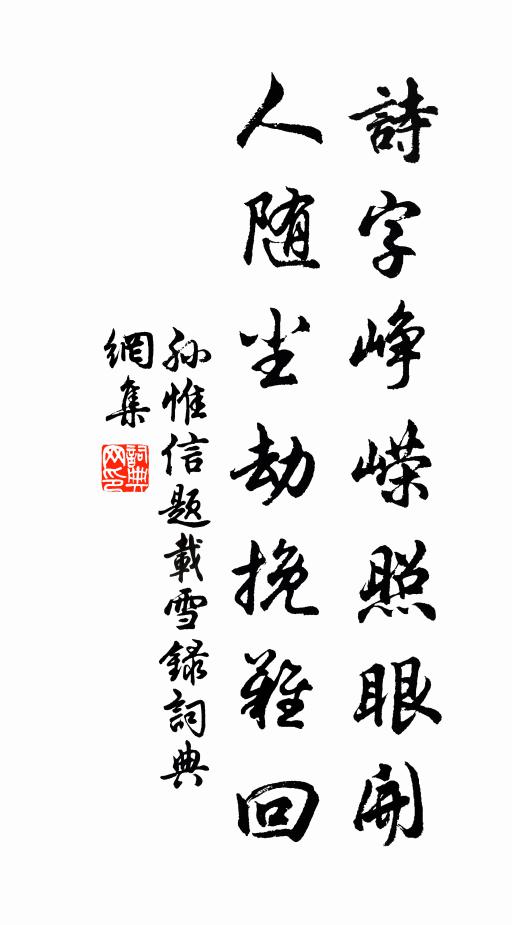 詩字崢嶸照眼開
人随尘劫挽難回
孙惟信题載雪録詞典
網集
詞典网印